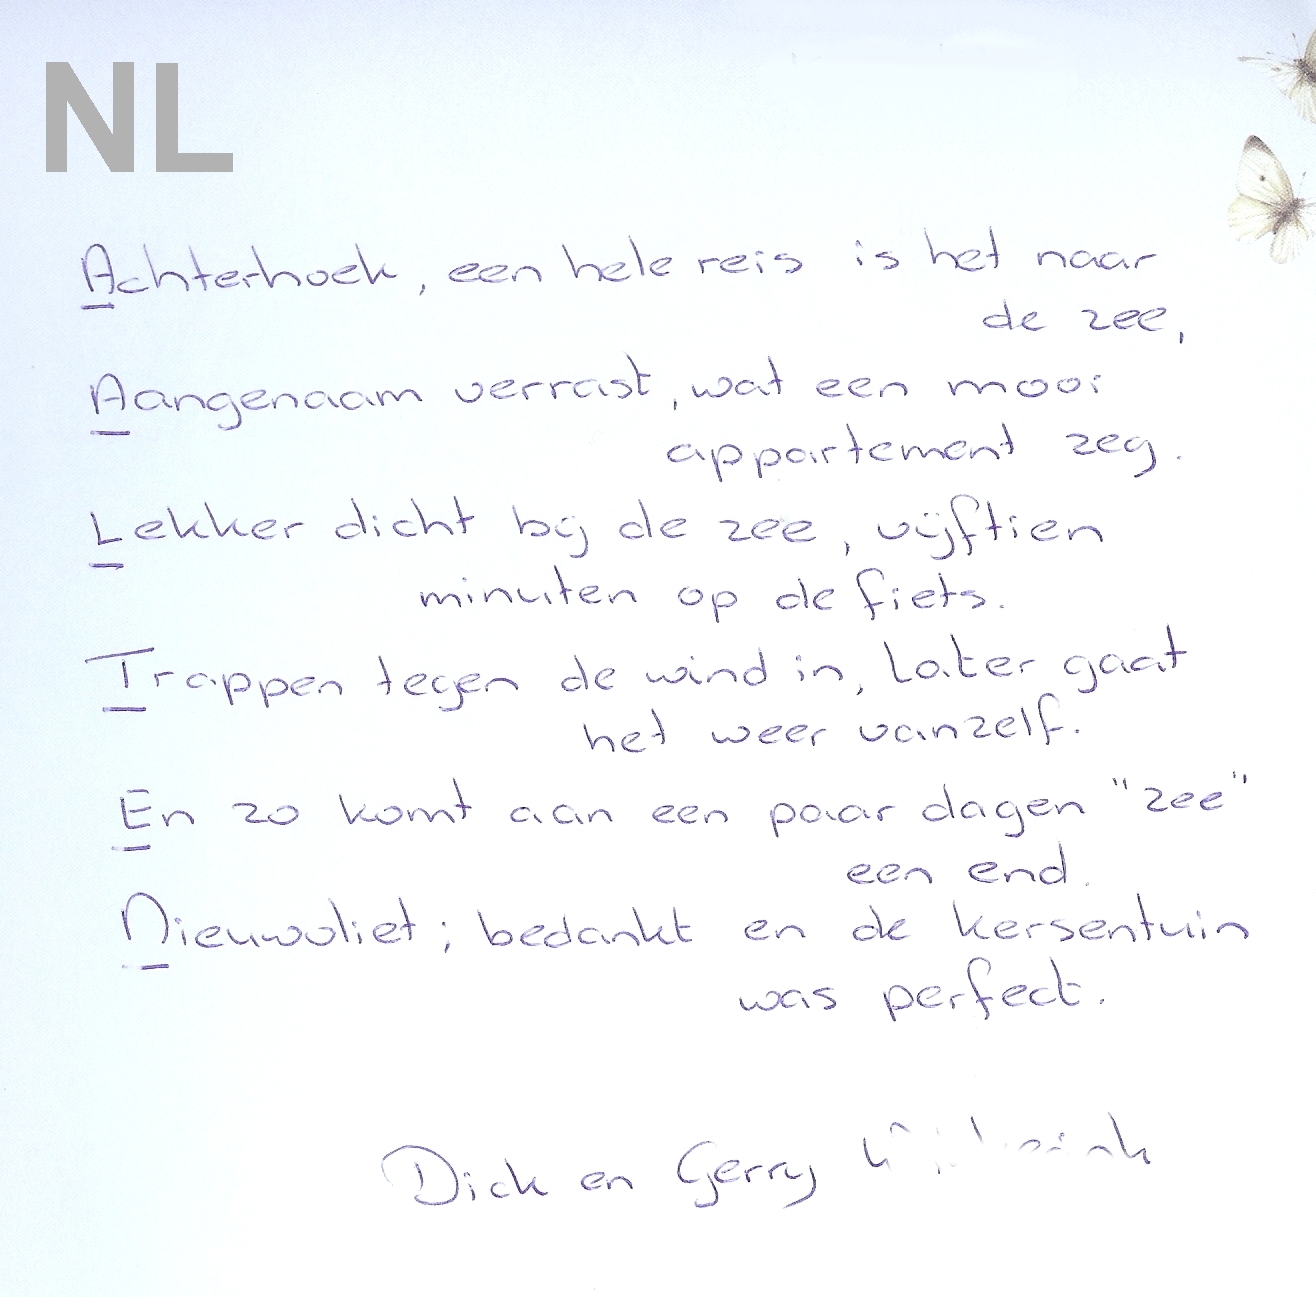 NL
Achterhoek, een hele reis is het naar
de zee,
Aangenaam verrast, wat een mooi
appartement zeg.
Lekker dicht bij de zee, vijftien
minuten op de fiets.
Trappen tegen de wind in, later gaat
het weer vanzelf.
En zo komt aan een paar dagen "zee"
een end.
Nieuwvliet; bedankt en de kersentuin
was perfect.
Dick en Gerry